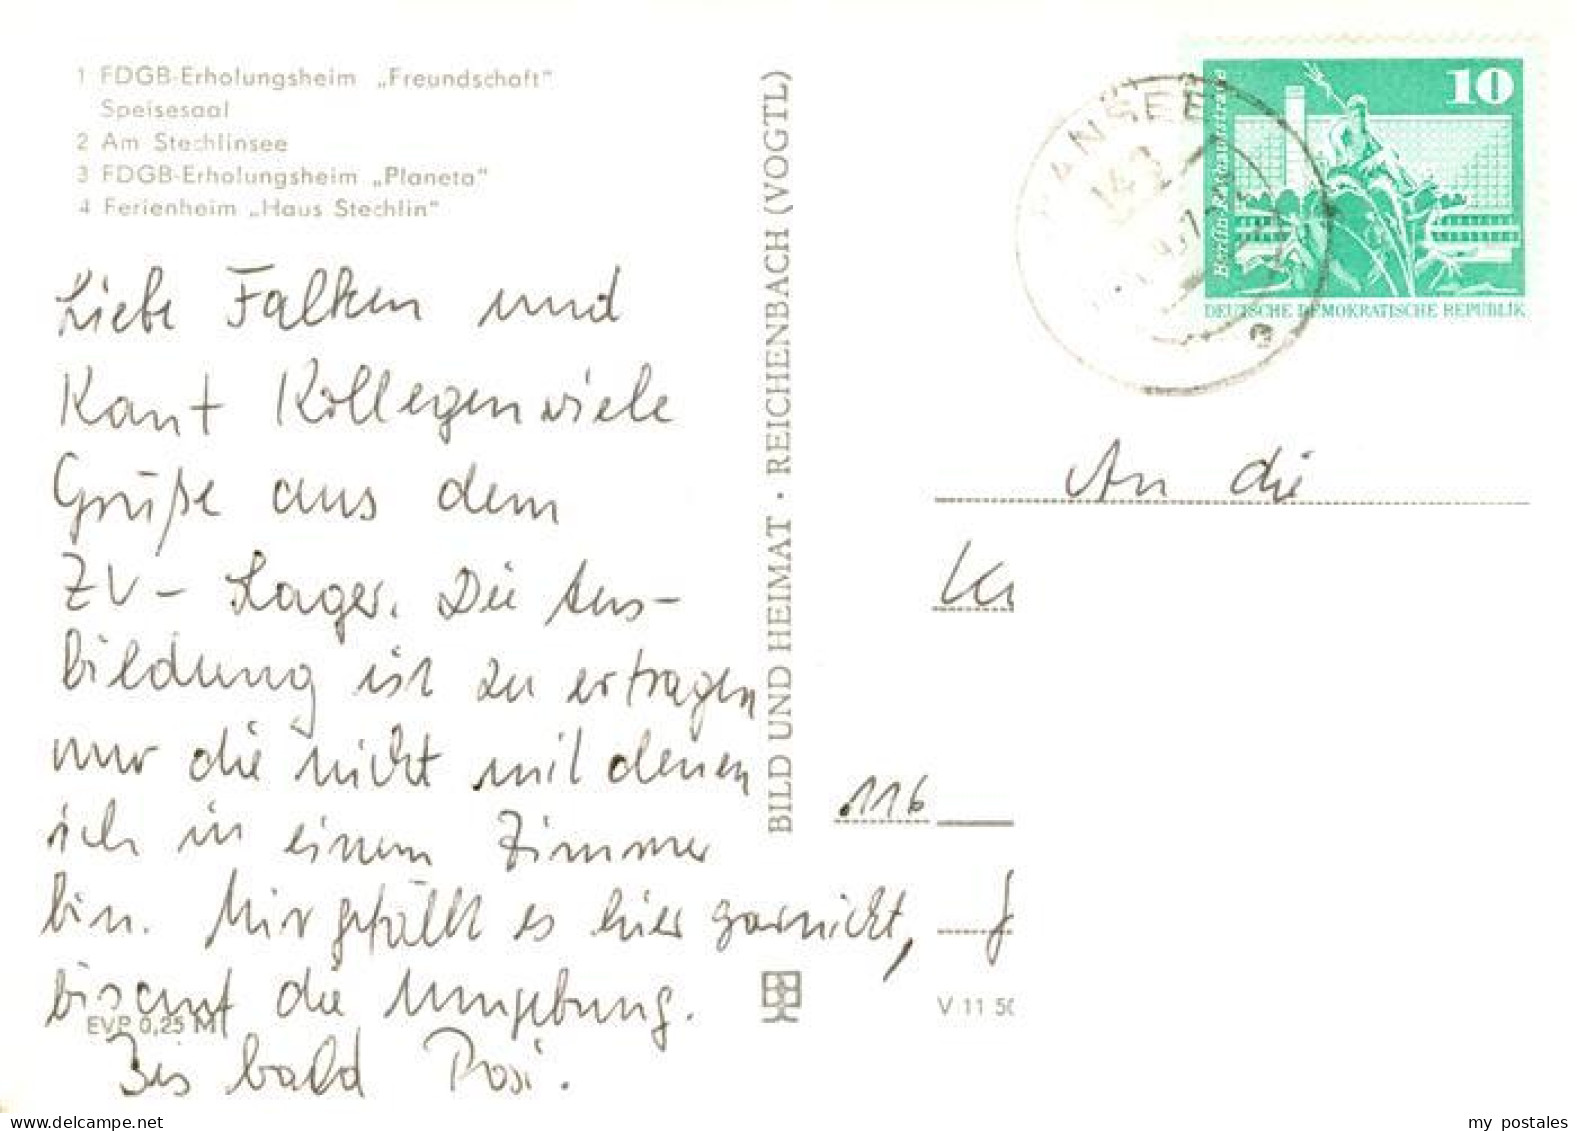 1 FDGB-Erholungsheim „Freundschaft"
Speisesaal
2 Am Stechlinsee
3 FDGB-Erholungsheim „Planeta"
4 Ferienheim „Haus Stechlin"
Liebe Falken und
Kant Kollegen viele
Grüße aus dem
ZV- Lager. Die Aus-
bildung ist zu ertragen
nur die nicht mit denen
ich in einem Zimmer
bin. Mir gefällt es hier garnicht,
bis auf die Umgebung.
Bis bald Rosi.
EVP 0,25 M
BILD UND HEIMAT · REICHENBACH (VOGTL)
10
Berlin-Rathausstraße
DEUTSCHE DEMOKRATISCHE REPUBLIK
RANSEE
An die
116
V 11 50
my postales